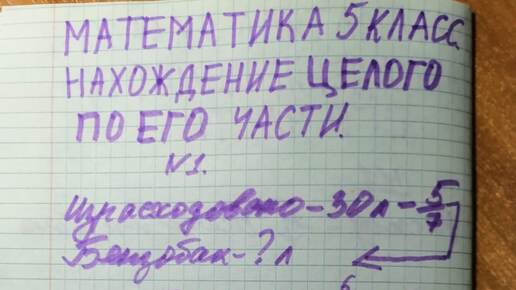 МАТЕМАТИКА 5 КЛАСС.
НАХОЖДЕНИЕ ЦЕЛОГО
ПО ЕГО ЧАСТИ.
№1.
Израсходовано – 30 л – 5/7
Бензобак – ? л
6